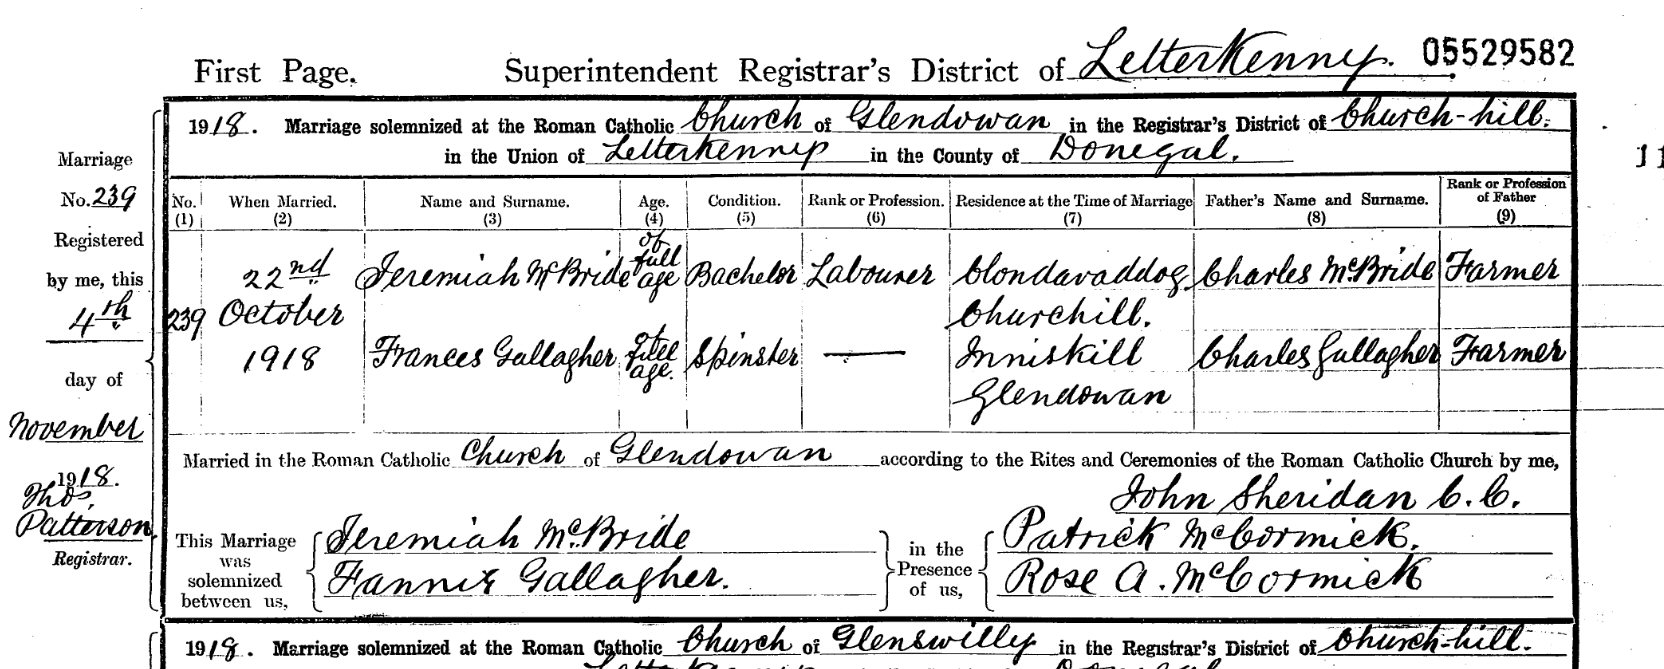 First Page. Superintendent Registrar's District of Letterkenny. 05529582
1918. Marriage solemnized at the Roman Catholic Church of Glendowan in the Registrar's District of Church-hill.
in the Union of Letterkenny in the County of Donegal.
11
Marriage
No. 239
Registered
by me, this
4th
day of
November
1918.
Thos.
Patterson
Registrar.
No. When Married. Name and Surname. Age. Condition. Rank or Profession. Residence at the Time of Marriage Father's Name and Surname. Rank or Profession of Father
(1) (2) (3) (4) (5) (6) (7) (8) (9)
239 22nd October 1918
Jeremiah McBride of full age Bachelor Labourer Clondavaddog Churchill. Charles McBride Farmer
Frances Gallagher of full age. Spinster — Inniskill Glendowan Charles Gallagher Farmer
Married in the Roman Catholic Church of Glendowan according to the Rites and Ceremonies of the Roman Catholic Church by me,
John Sheridan C.C.
This Marriage was solemnized between us,
Jeremiah McBride
Fannie Gallagher.
in the Presence of us,
Patrick McCormick.
Rose A. McCormick
1918. Marriage solemnized at the Roman Catholic Church of Glenswilly in the Registrar's District of Church-hill.